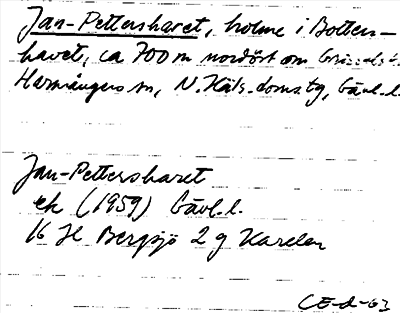 Jan-Pettersharet, holme i Botten-
havet, ca 700 m nordöst om
Harmångers sn, N. Häls. domstg, Gävl. l.
Jan-Pettersharet
ek (1959) Gävl. l.
16 H Bergsjö 2 g Karelen